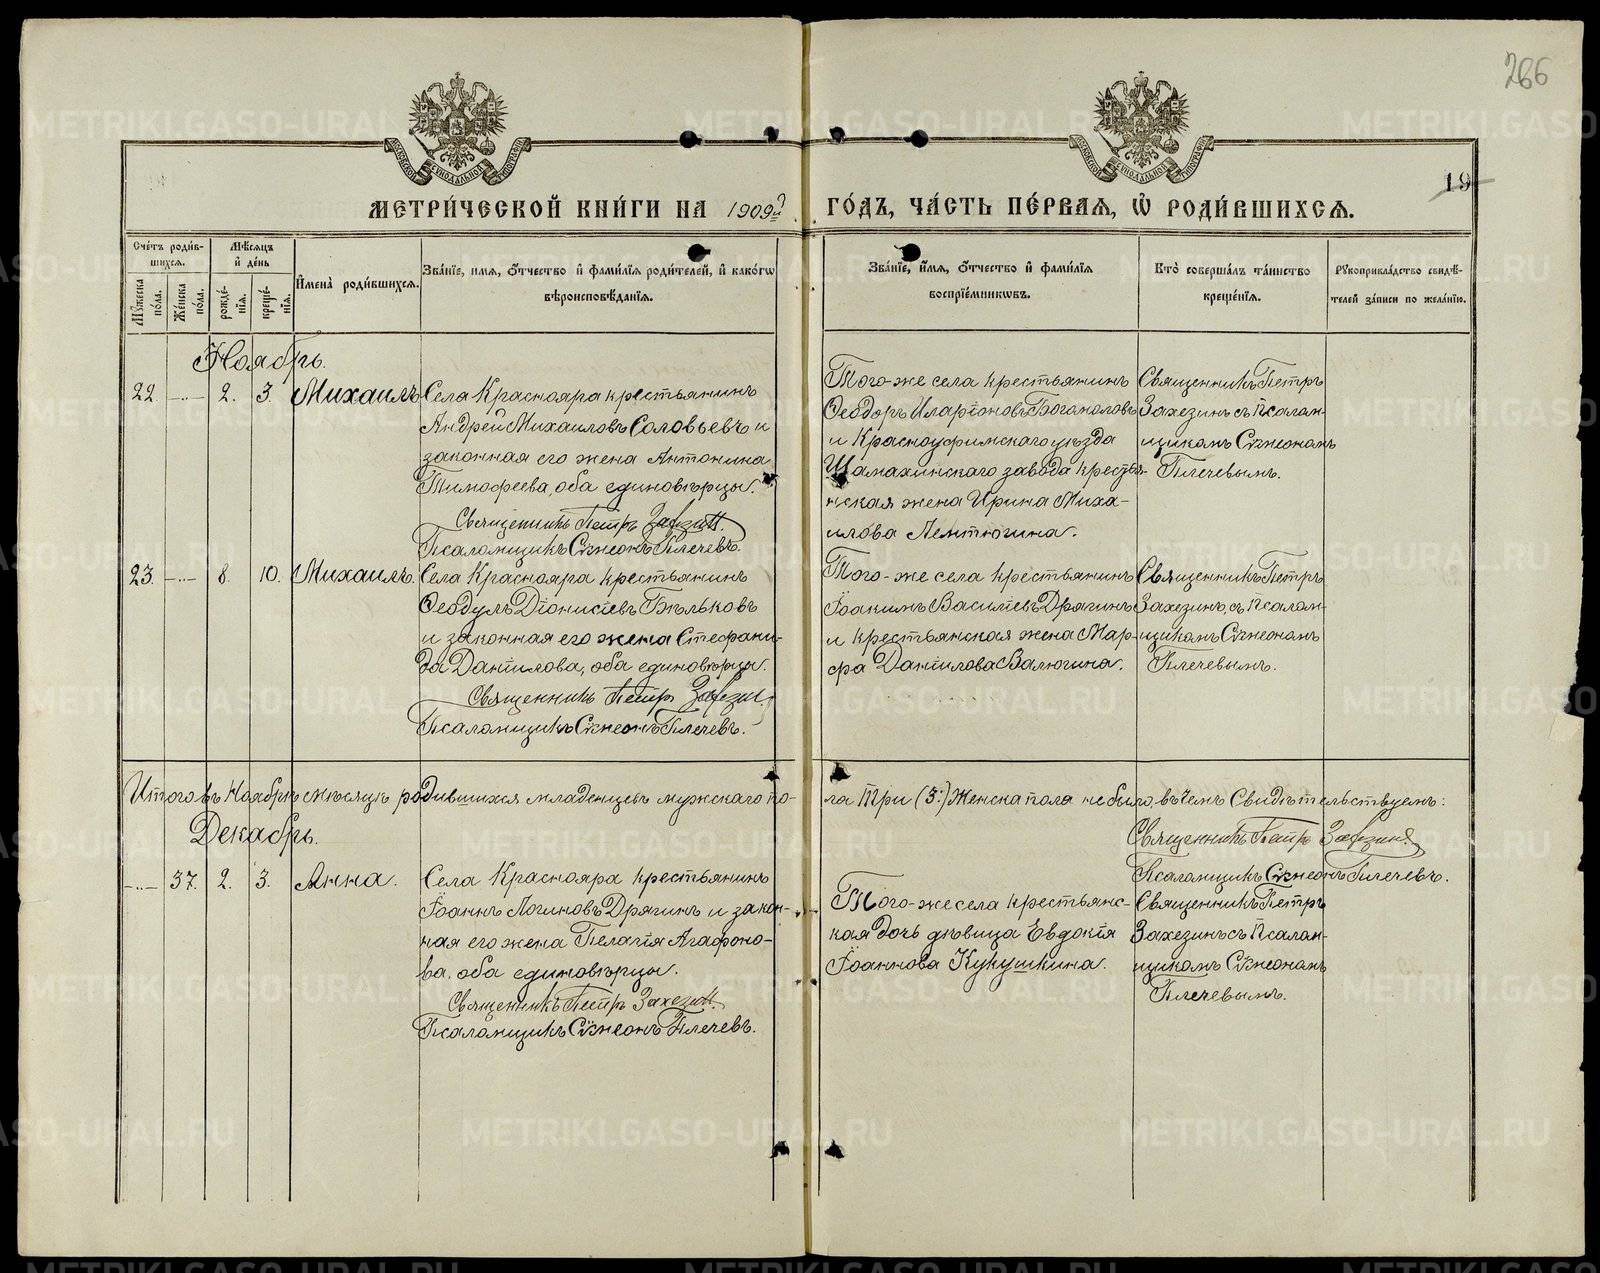 266
19
МЕТРИ́ЧЕСКОЙ КНИ́ГИ НА 1909й ГО́ДЪ, ЧА́СТЬ ПЕ́РВАЯ, Ѽ РОДИ́ВШИХСЯ.
Сче́тъ роди́в-
шихся.
Му́жеска по́ла.
Же́нска по́ла.
Мѣ́сяцъ
и̂ де́нь
рожде́-
нїя.
креще́-
нїя.
И̂мена̀ роди́вшихся.
Зва́нїе, и̂мя, Ѻ́тчество и̂ фами́лїя роди́телей, и̂ како́гѡ
вѣроисповѣ́данїя.
Зва́нїе, и̂мя, Ѻ́тчество и̂ фами́лїя
воспрїе́мникѡвъ.
Кто̀ соверша́лъ та́инство
креще́нїя.
Рꙋкоприкла́дство свидѣ́-
телей за́писи по жела́нїю.
Ноябрь.
22. 2. 3. Михаилъ
Села Краснояра крестьянинъ
Андрей Михаиловъ Соловьевъ и
законная его жена Антонина
Тимофеева, оба единовѣрцы.
Священникъ Петръ Захезин.
Псаломщикъ Сѵмеонъ Плечевъ.
Того-же села крестьянинъ
Ѳеодоръ Иларіоновъ Богомоловъ
и Красноуфимскаго уѣзда
Шамахинскаго завода крестья-
нская жена Ирина Миха-
илова Лемтюгина.
Священникъ Петръ
Захезинъ съ Псалом-
щикомъ Сѵмеономъ
Плечевымъ.
23. 8. 10. Михаилъ.
Села Краснояра крестьянинъ
Ѳеодулъ Діонисіевъ Бѣльковъ
и законная его жена Стефани-
да Даніилова, оба единовѣрцы.
Священникъ Петр Захезин
Псаломщикъ Сѵмеонъ Плечевъ.
Того-же села крестьянинъ
Іоакимъ Василіевъ Дрягинъ
и крестьянская жена Мар-
фа Даніилова Валюгина.
Священникъ Петръ
Захезинъ, съ Псалом-
щикомъ Сѵмеономъ
Плечевымъ.
Итого въ Ноябрѣ мѣсяцѣ родившихся младенцевъ мужскаго по-
ла Три (3.) Женска пола не было, въ чемъ Свидѣтельствуемъ:
Священникъ Петръ Захезинъ
Псаломщикъ Сѵмеонъ Плечевъ.
Декабрь.
37. 2. 3. Анна.
Села Краснояра крестьянинъ
Іоаннъ Логиновъ Дрягинъ и закон-
ная его жена Пелагія Агафоно-
ва, оба единовѣрцы.
Священникъ Петръ Захезин.
Псаломщикъ Сѵмеонъ Плечевъ.
Того-же села крестьянс-
кая дочь дѣвица Евдокія
Іоаннова Кукушкина.
Священникъ Петръ
Захезинъ съ Псалом-
щикомъ Сѵмеономъ
Плечевымъ.
METRIKI.GASO-URAL.RU